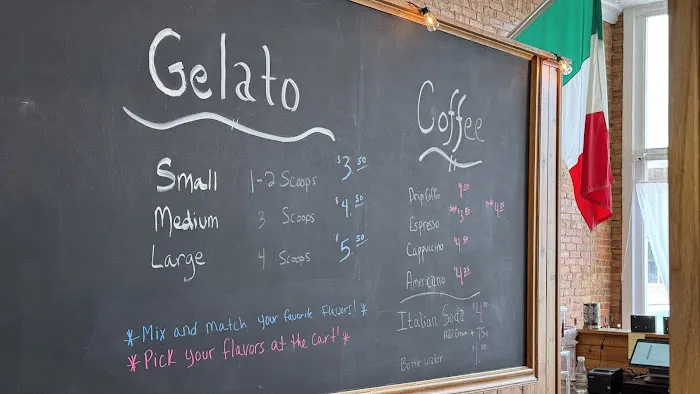 Gelato
Small 1-2 Scoops $3.50
Medium 3 Scoops $4.50
Large 4 Scoops $5.50
*Mix and match your favorite flavors!*
*Pick your flavors at the cart!*
Coffee
Drip Coffee
Espresso
Cappuccino
Americano
Italian Soda
Add Cream + .75
Bottle Water